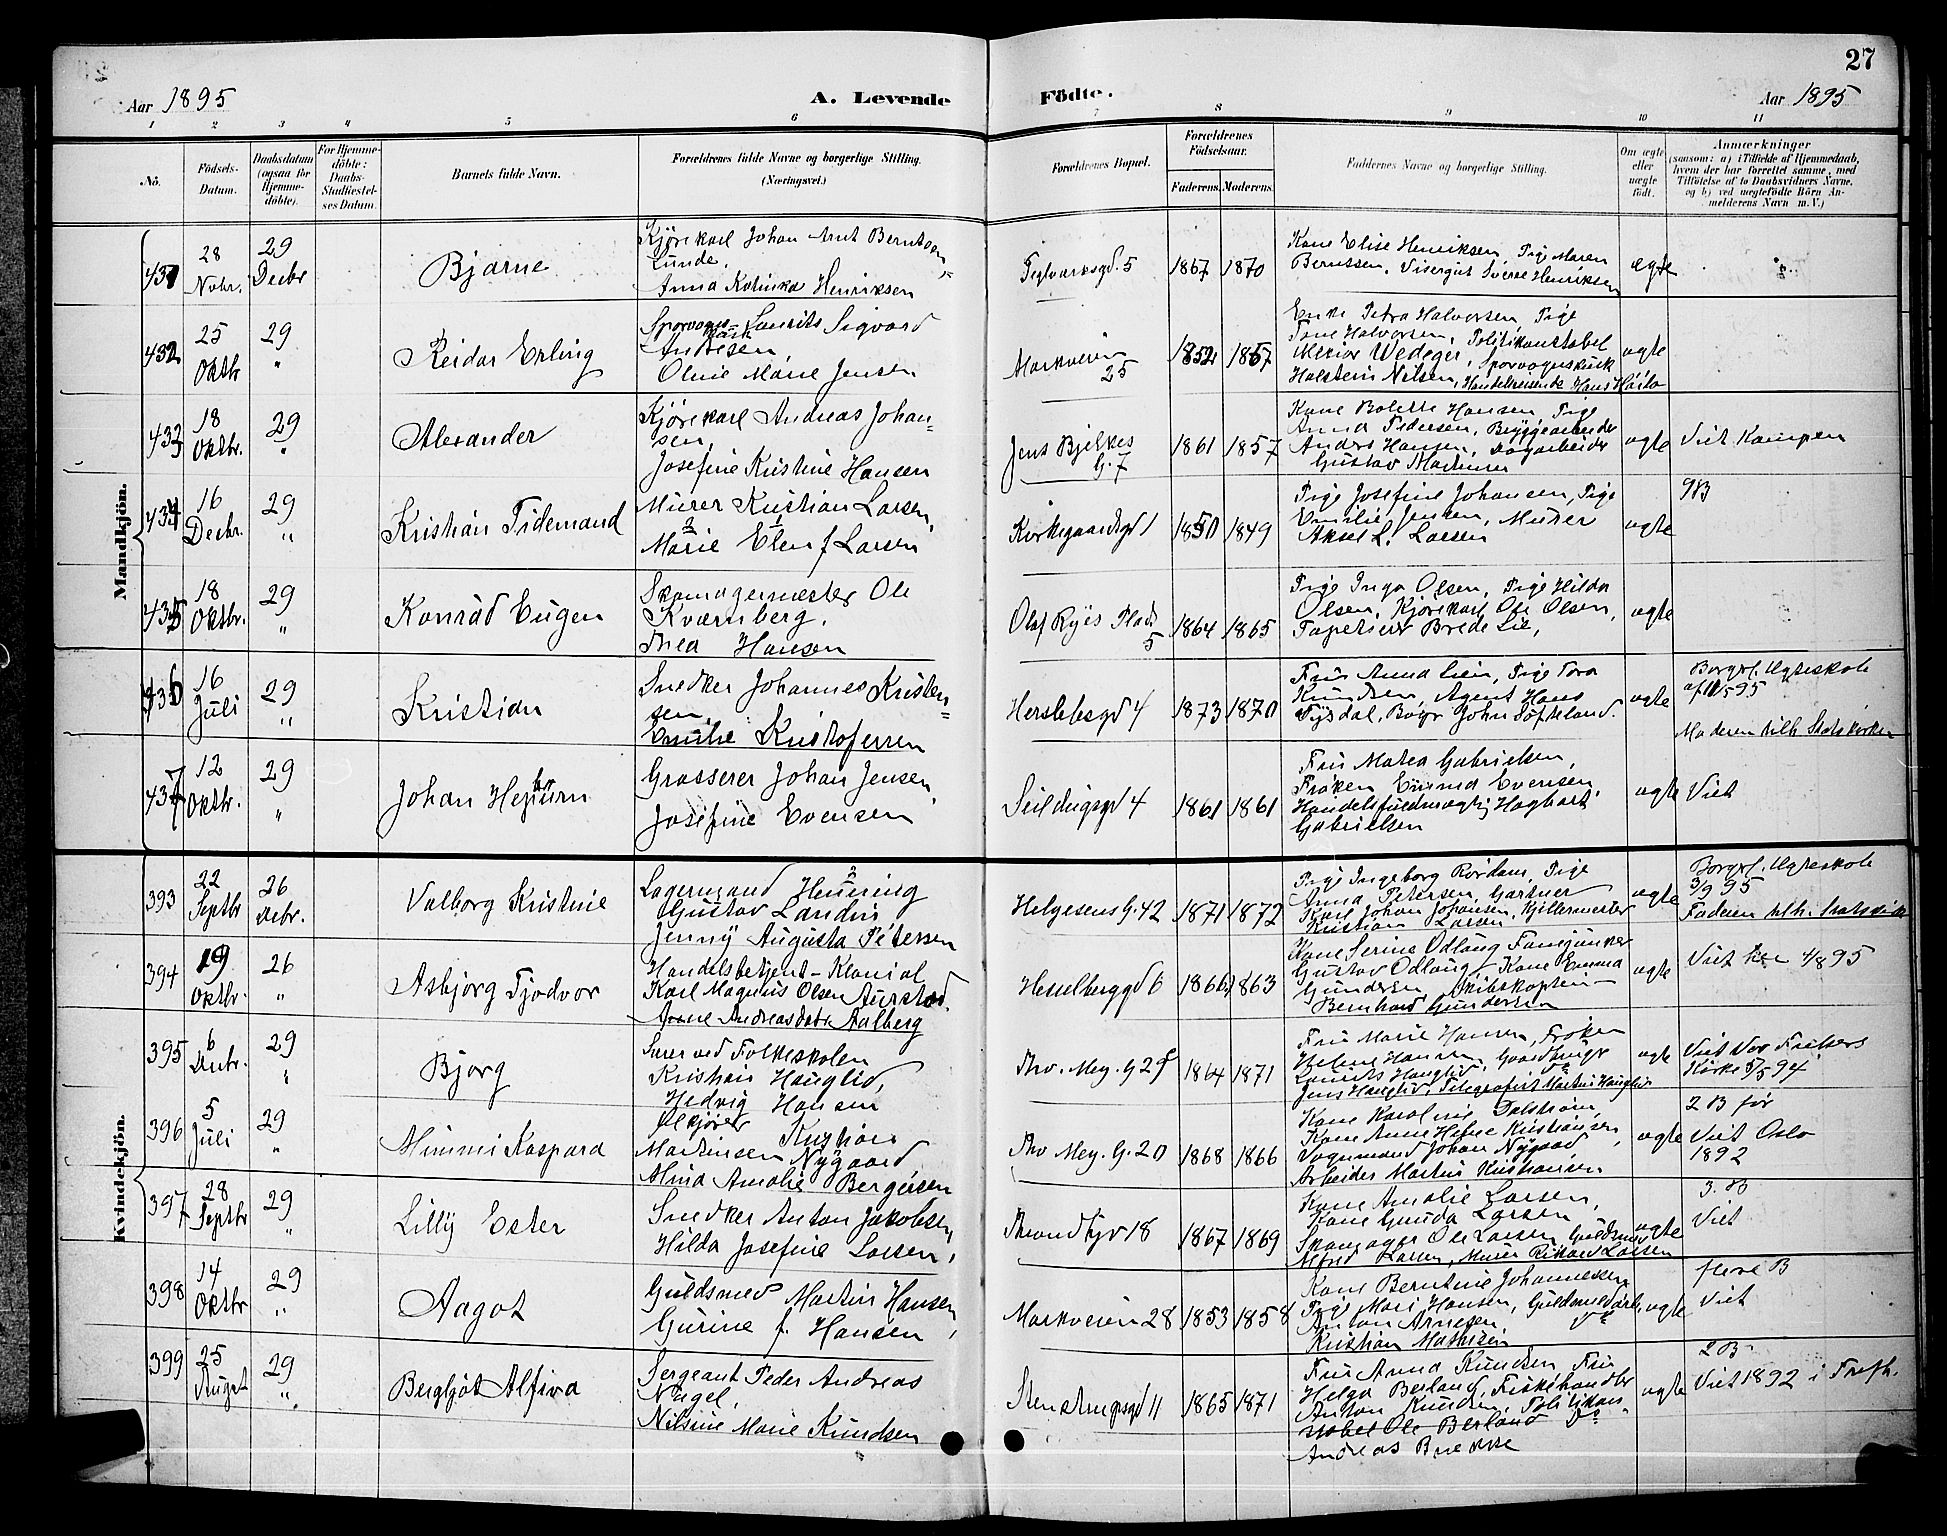 27
Aar 1895
A. Levende
Födte.
Aar 1895
1 2 3 4 5 6 7 8 9 10 11
No.
Födsels-Datum.
Daabsdatum (ogsaa for Hjemme-döbte).
For Hjemme-döbte: Daabs-Stadfæstel-ses Datum.
Barnets fulde Navn.
Forældrenes fulde Navne og borgerlige Stilling.
(Næringsvei.)
Forældrenes Bopæl.
Forældrenes Födselsaar.
Faderens. Moderens.
Faddernes Navne og borgerlige Stilling.
Om ægte eller uægte födt.
Anmærkninger
(saasom: a) i Tilfælde af Hjemmedaab,
hvem der har forrettet samme, med
Tilföielse af to Daabsvidners Navne,
og b) ved uægtefödte Börn An-
melderens Navn m. V.)
Mandkjön.
431
28 Novbr.
29 Decbr
Bjarne
Kjørekarl Johan Arnt Berntsen
Lunde,
Anna Katinka Henriksen
Teglverksgd. 5
1867 1870
Kone Elise Henriksen, Pige Maren
Berntsen, Visergut Sverre Henriksen
ægte
432
25 Oktbr
29 "
Reidar Erling
Sporvogns-kusk Laurits Sigvard
Andresen,
Oline Marie Jensen
Markveien 25
1852 1857
Enke Petra Halvorsen, Pige
Tone Halvorsen, Politikonstabel
Wedeger, Sporvognskusk
Halstein Nilsen, Handelsreisende Hans
ægte
433
18 Oktbr.
29 "
Alexander
Kjørekarl Andreas Johan-
sen,
Josefine Kristine Hansen
Jens Bjelkes G. 7
1861 1857
Kone Bolette Hansen, Pige
Anna Pedersen, Bryggearbeider
Anders Hansen, Dagarbeider
Gustav
ægte
Viet Kampen
434
16 Decbr.
29 "
Kristian Tidemand
Murer Kristian Larsen,
Marie Elen f. Larsen
Kirkegaardsgd 1
1850 1849
Pige Josefine Johansen, Pige
Emilie Jensen, Murer
Aksel L. Larsen
ægte
9B
435
18 Oktbr.
29 "
Konrad Eugen
Skomagermester Ole
Kværnberg,
Thea Hansen
Olaf Ryes Plads 5
1864 1865
Pige Inga Olsen, Pige Hilda
Olsen, Kjørekarl Ole Olsen,
Tapetserer Brede Lie,
ægte
436
16 Juli
29 "
Kristian
Snedker Johannes Kristen-
sen,
Emilie Kristofersen
Herslebsgd 4
1873 1870
Frue Anna Lien, Pige Tora
Knudsen, Agent Hans
Tysdal, John Toftelund.
ægte
Borgerl. Ægteskab
af 11/5 95
Moderen tilh. Statskirken
437
12 Oktbr.
29 "
Johan
Grosserer Johan Jensen,
Josefine Evensen
Seildugsgd 4
1861 1861
Frue Matea Gabrielsen,
Frøken Emma Evensen
Handelsfuldmægtig Hagbart
Gabrielsen
ægte
Viet
Kvindekjön.
393
22 Septbr
26 Debr.
Valborg Kristine
Lagermand Henning
Gustav Landin,
Jenny Augusta Petersen
Helgesens G. 42
1871 1872
Pige Ingeborg Rørdam, Pige
Anna Petersen, Gartner
Karl Johan Johansen, Kjellermester
Kristian Larsen
ægte
Borgerl. Ægteskab
3/9 95
Faderen tilh. Statskirk
394
19 Oktbr.
26 "
Asbjørg Tjodvor
Handelsbetjent – Kolonial
Karl Magnus Olsen Aurstad.
Anne Andreasdatr. Aalberg
Hesselberggd 6
1866 1863
Kone Serine Odlaug Fanejunker
Gustav Odlaug, Kone Emma
Gundersen, Skibskaptein
Bernhard Gundersen
ægte
Viet her 4/8 95
395
6 Decbr.
29 "
Bjørg
Lærer ved Folkeskolen
Kristian Hauglid,
Hedvig Hansen
Thv. Mey. G 29
1864 1871
Frue Marie Hansen, Frøken
Helene Hansen, Gaardbruger
Laurits Hauglid,
Jens Hauglid, Telegrafist Martin Hauglid
ægte
Viet Vor Frelsers
Kirke 5/5 94
396
5 Juli
29 "
Mimmi Kaspara
Ølkjører Kristian
Martinsen Nygaard
Alma Amalie Bergersen
Thv Mey. G. 20
1868 1866
Kone Karoline Dalstrøm,
Kone Anne Helene Kristiansen,
Vognmand Johan Nygaard
Arbeider Martin Kristiansen
ægte
2 B før
Viet Oslo
1892
397
28 Septbr
29 "
Lilly Ester
Snedker Anton Jakobsen,
Hilda Josefine Larsen,
18
1867 1869
Kone Amalie Larsen,
Kone Gunda Larsen
Skomager Ole Larsen, Guldsmed
Alfred Larsen, Murer Rikard Larsen
ægte
3. B
Viet
398
14 Oktbr
29 "
Aagot
Guldsmed Martin Hansen,
Gurine f. Hansen
Markveien 28
1853 1858
Kone Berntine Johannesen
Pige Mari Hansen, Guldsmedarb.
Anton Arnesen, do
Kristian Mathisen
ægte
flere B
Viet
399
25 Augst
29 "
Bergljot Alfiva
Sergeant Peder Andreas
Nagel,
Nilsine Marie Knudsen
Stenstrupsgd 11
1865 1871
Frue Anna Knudsen, Frue
Helga Berland, Fiskehandler
Anton Knudsen, Politikon-
stabel Ole Berland do
Andreas Brekke
ægte
2 B
Viet 1892 i Trefh.